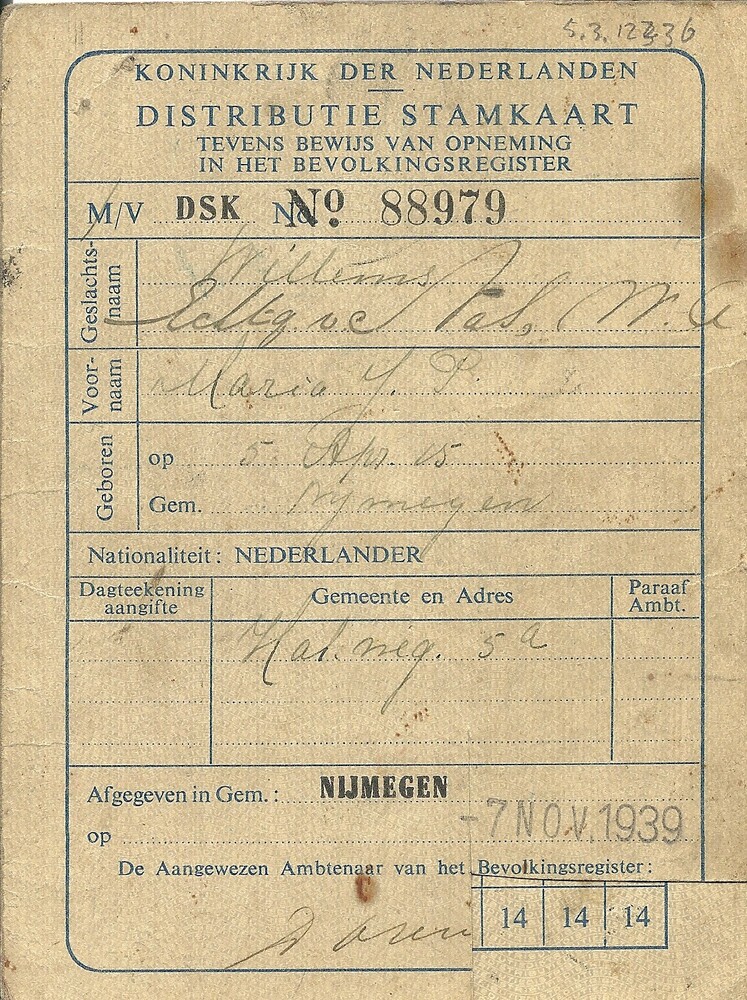 KONINKRIJK DER NEDERLANDEN
DISTRIBUTIE STAMKAART
TEVENS BEWIJS VAN OPNEMING
IN HET BEVOLKINGSREGISTER
M/V DSK No. 88979
Geslachts-
naam
Willems
Voor-
naam
Maria J. P.
Geboren
op 5 Apr. 15
Gem. Nymegen
Nationaliteit: NEDERLANDER
Dagteekening
aangifte
Gemeente en Adres
Paraaf
Ambt.
5a
Afgegeven in Gem.: NIJMEGEN
op -7 NOV. 1939
De Aangewezen Ambtenaar van het Bevolkingsregister:
14 14 14